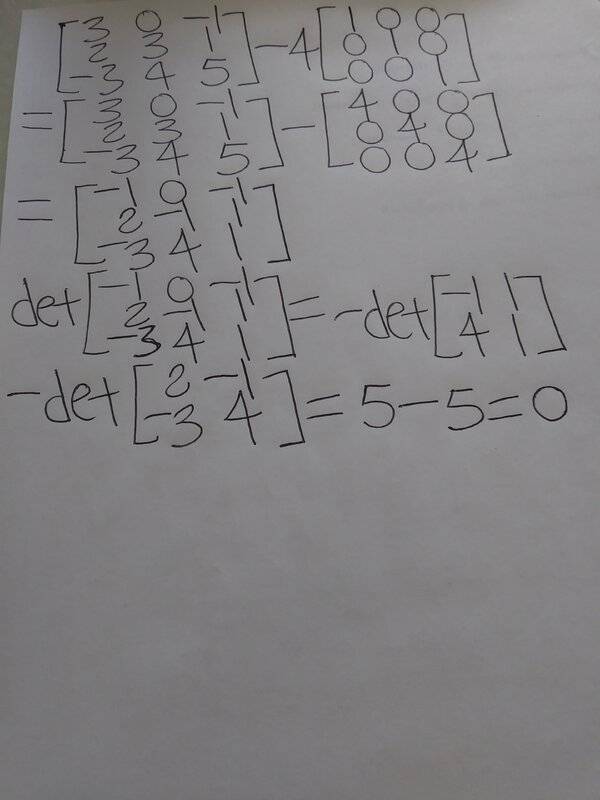 [3 0 -1
2 3 1
-3 4 5] - 4 [1 0 0
0 1 0
0 0 1]
= [3 0 -1
2 3 1
-3 4 5] - [4 0 0
0 4 0
0 0 4]
= [-1 0 -1
2 -1 1
-3 4 1]
det [-1 0 -1
2 -1 1
-3 4 1] = -det [-1 1
4 1]
-det [2 -1
-3 4] = 5-5=0